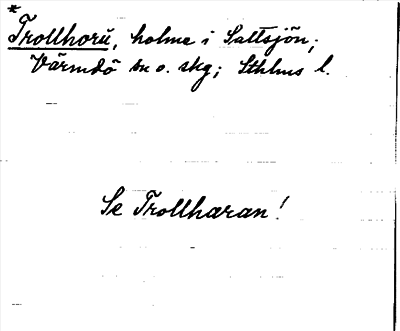 *
Trollhorū, holme i Saltsjön;
Värmdö sn o. skg; Sthlms l.
Se Trollharan!